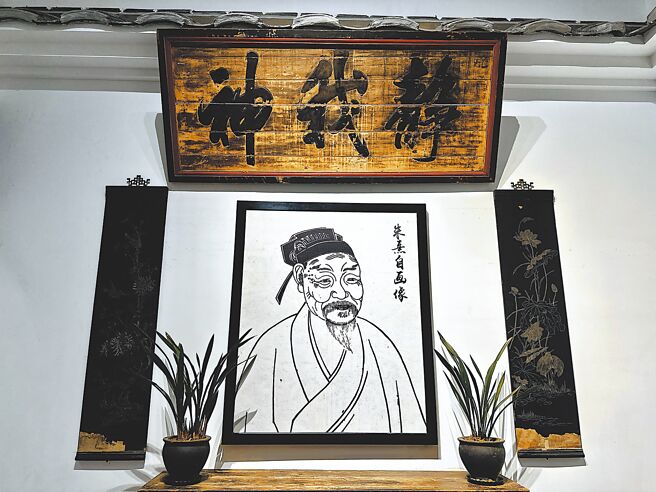 靜我神
朱熹自画像